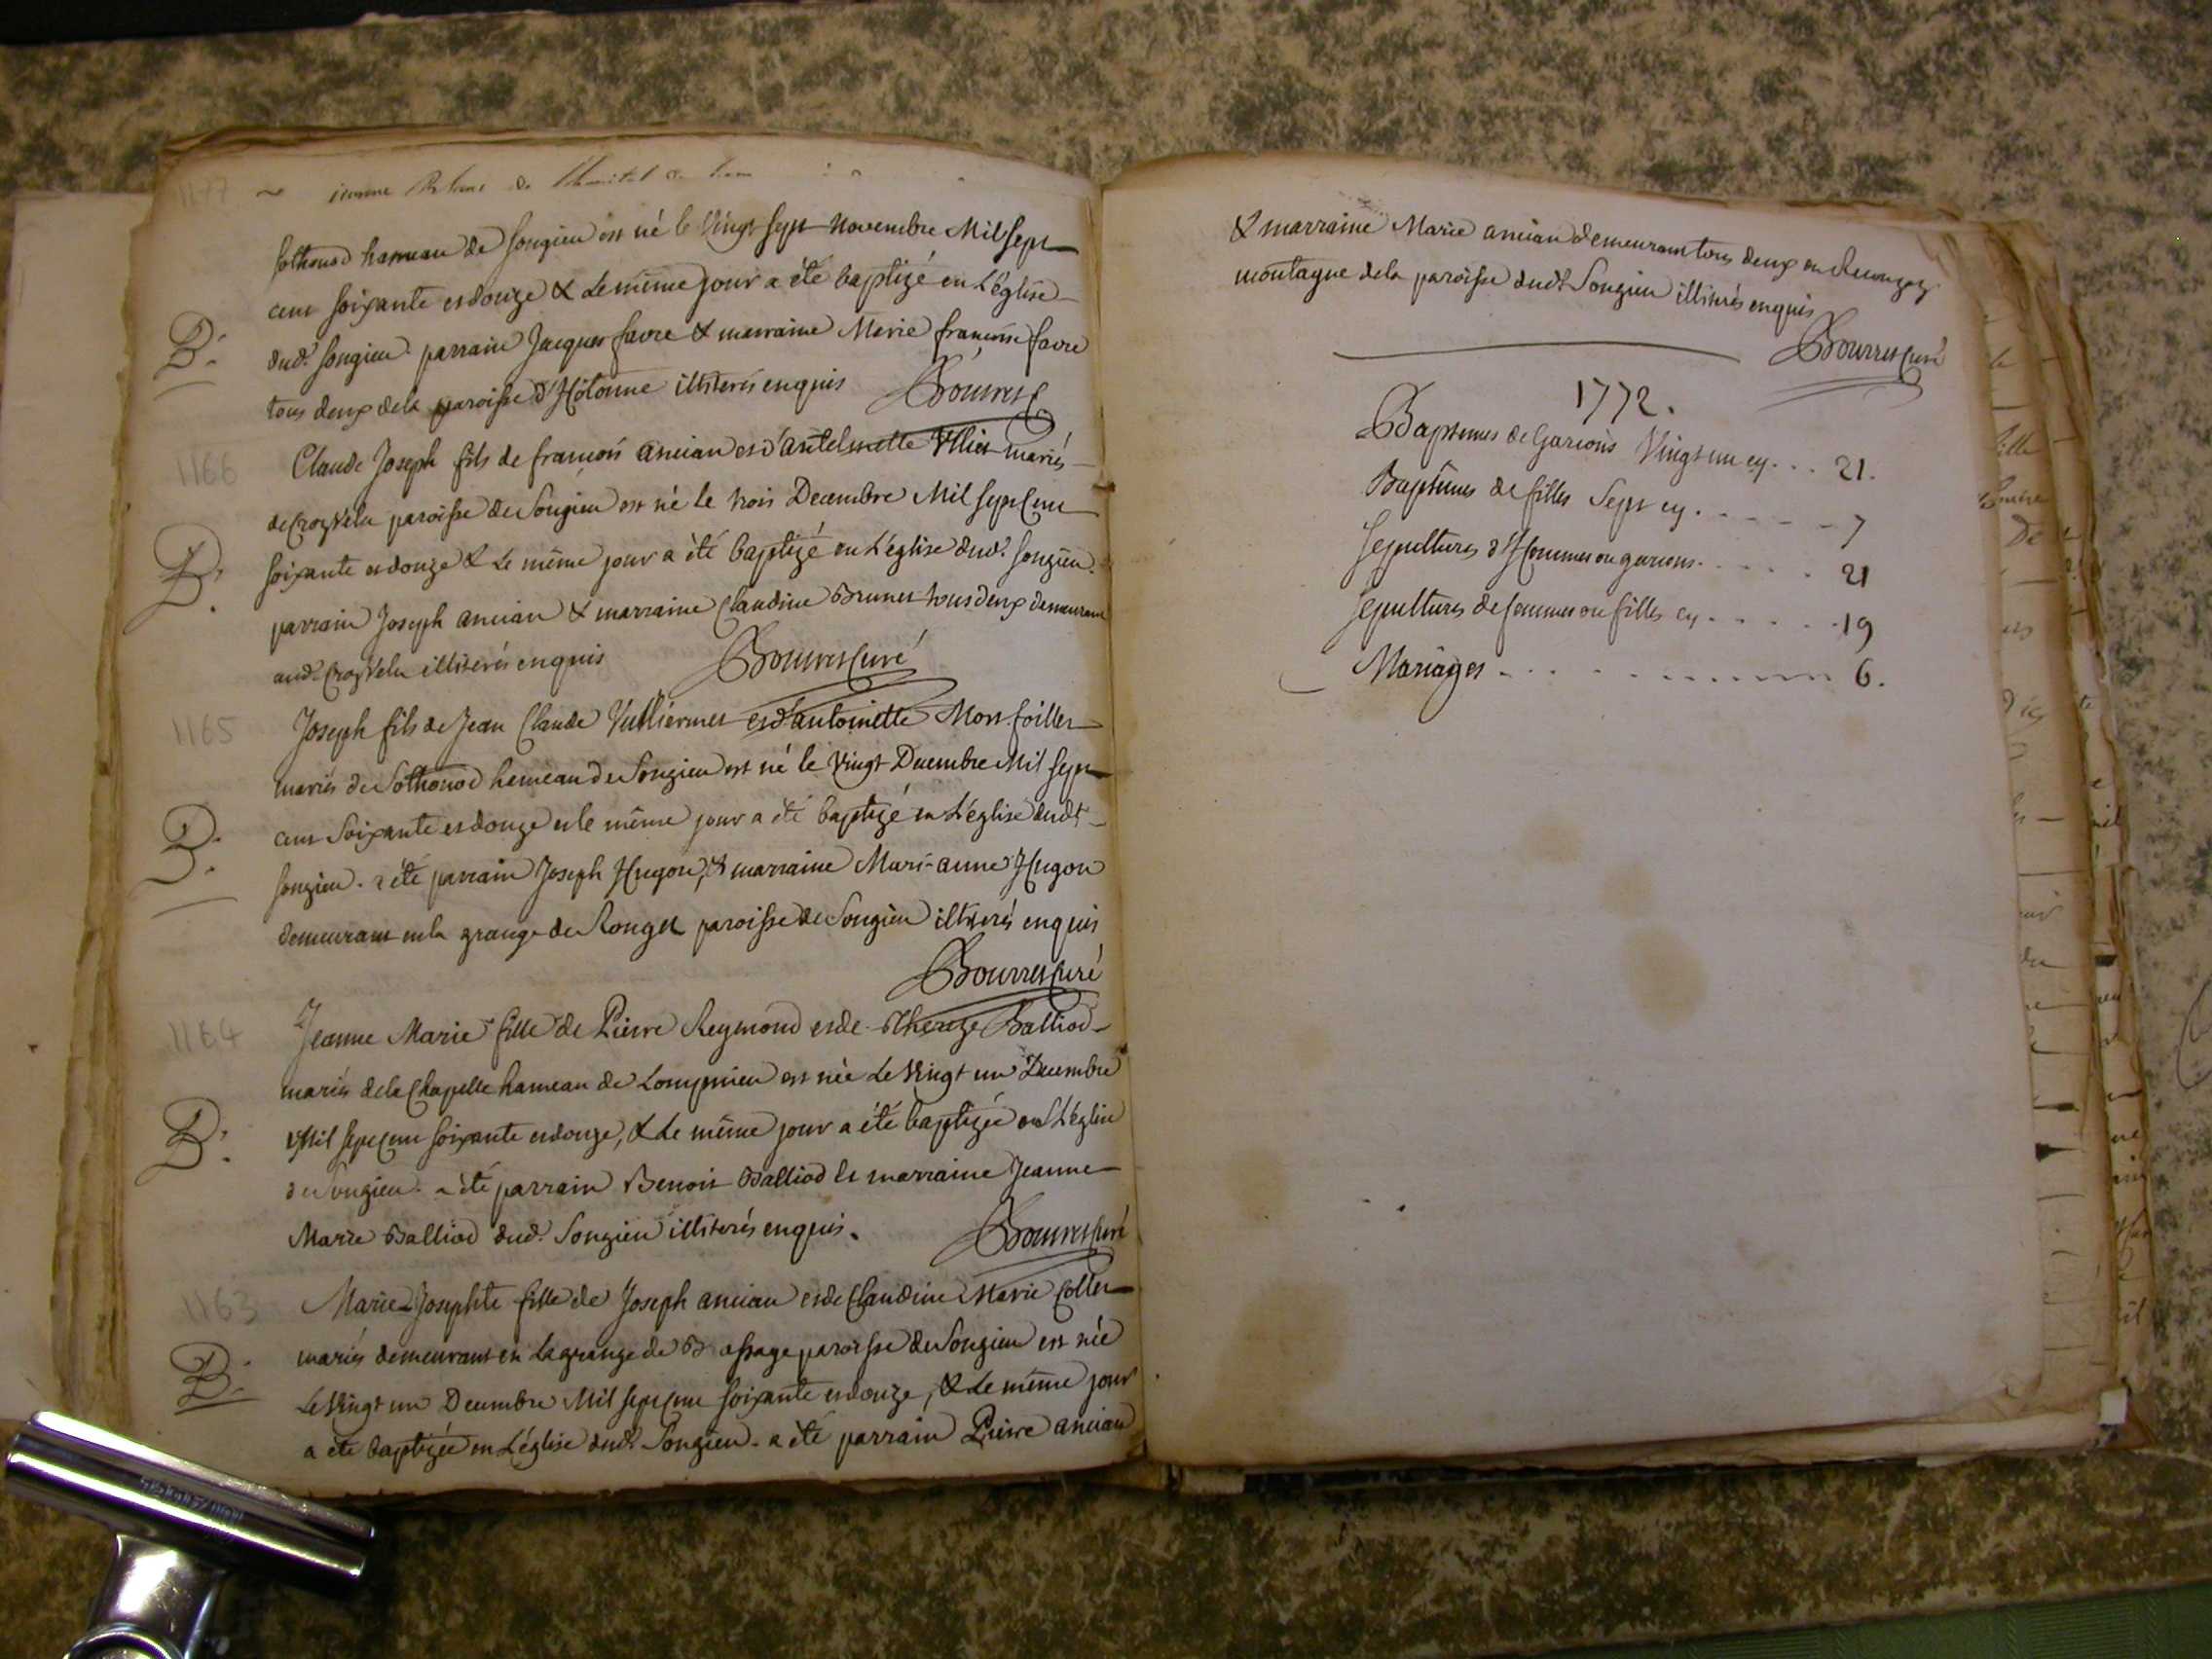 Sothonod hameau de Songieu est né le Vingt sept Novembre Mil sept
cent soixante et douze & le même jour a été baptizé en L'église
dud. Songieu. parrain Jacques favre & marraine Marie françoise favre
tous deux de la paroisse d'Hotonne illiterés enquis Bourret C
1166
Claude Joseph fils de françois ancian et d'antelmette mariés
de Crozvelu paroisse de Songieu est né le trois Decembre Mil sept Cent
B.
soixante et douze & le même jour a été baptizé en L'église dud. Songieu.
parrain Joseph ancian & marraine Claudine Brunet tous deux demeurant
aud. Crozvelu illiterés enquis Bourret Curé
1165
Joseph fils de Jean Claude Vulliermet et d'antoinette Monfoillet
mariés de Sothonod hameau de Songieu est né le Vingt Decembre Mil sept
B.
cent Soixante et douze et le même jour a été baptizé en L'église dudt
Songieu. a été parrain Joseph Hugon, & marraine Mari-anne Hugon
demeurant en la grange de Rouget paroisse de Songieu illiterés enquis
Bourret Curé
1164
Jeanne Marie fille de Pierre Reymond et de Thereze Balliod
mariés de la Chapelle hameau de Lompnieu est née Le Vingt un Decembre
B.
Mil sept Cent soixante et douze, & le même jour a été baptizée en L'église
de Songieu. a été parrain Benoit Balliod et marraine Jeanne
Marie Balliod dud. Songieu illiterés enquis. Bourret Curé
1163
Marie Josephte fille de Joseph ancian et de Claudine Marie Collet
mariés demeurant en La grange de Bassage paroisse de Songieu est née
B.
Le Vingt un Decembre Mil sept Cent soixante et douze, & Le même jour
a été baptizée en L'église dud. Songieu. a été parrain Pierre ancian
& marraine Marie ancian demeurant tous deux en
montagne de la paroisse dudt Songieu illiterés enquis
Bourret Curé
1772.
Baptemes de Garçons Vingt un cy... 21.
Baptêmes de filles Sept cy...... 7
Sepultures d'Hommes ou garçons..... 21
Sepultures de femmes ou filles cy..... 19
Mariages............ 6.